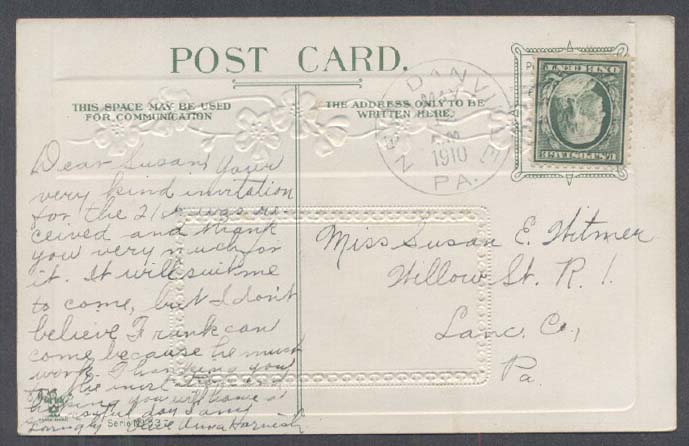 POST CARD.
THIS SPACE MAY BE USED
FOR COMMUNICATION
THE ADDRESS ONLY TO BE
WRITTEN HERE.
DANVILLE
MAY
1910
PA.
U.S. POSTAGE
ONE CENT
Dear Susan, Your
very kind invitation
for the 21st was re-
ceived and thank
you very much for
it. It will suit me
to come, but I don't
believe Frank can
come because he must
work. Thanking you
for the
hoping you will have a
day I am
Lovingly Anna Harnish
Miss Susan E. Witmer
Willow St. R. 1.
Lanc. Co.,
Pa.
Serie No